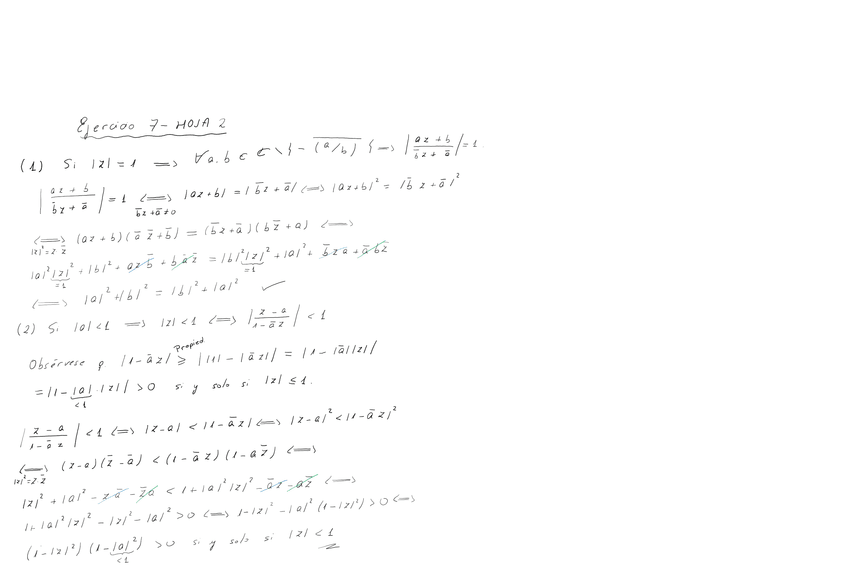 Ejercicio 7 - HOJA 2
(1) Si |z| = 1 ⟹ ∀ a, b ∈ ℂ \ { - \overline{(a/b)} } ⟹ | (az + b)/(b̄z + ā) | = 1.
| (az + b)/(b̄z + ā) | = 1 ⟺ (b̄z + ā ≠ 0) |az + b| = |b̄z + ā| ⟺ |az + b|² = |b̄z + ā|²
⟺ (|z|² = z z̄) (az + b)(ā z̄ + b̄) = (b̄z + ā)(b z̄ + a) ⟺
|a|² |z|² (=1) + |b|² + az b̄ + b ā z̄ = |b|² |z|² (=1) + |a|² + b̄ z a + ā b z̄
⟺ |a|² + |b|² = |b|² + |a|² ✓
(2) Si |a| < 1 ⟹ |z| < 1 ⟺ | (z - a)/(1 - ā z) | < 1
Obsérvese q |1 - ā z| ≥ (Propied.) | |1| - |ā z| | = |1 - |ā| |z| |
= |1 - |a| (<1) · |z| | > 0 si y solo si |z| ≤ 1.
| (z - a)/(1 - ā z) | < 1 ⟺ |z - a| < |1 - ā z| ⟺ |z - a|² < |1 - ā z|²
⟺ (|z|² = z z̄) (z - a)(z̄ - ā) < (1 - ā z)(1 - a z̄) ⟺
|z|² + |a|² - z ā - z̄ a < 1 + |a|² |z|² - ā z - a z̄ ⟺
1 + |a|² |z|² - |z|² - |a|² > 0 ⟺ 1 - |z|² - |a|² (1 - |z|²) > 0 ⟺
(1 - |z|²) (1 - |a|²) (<1) > 0 si y solo si |z| < 1